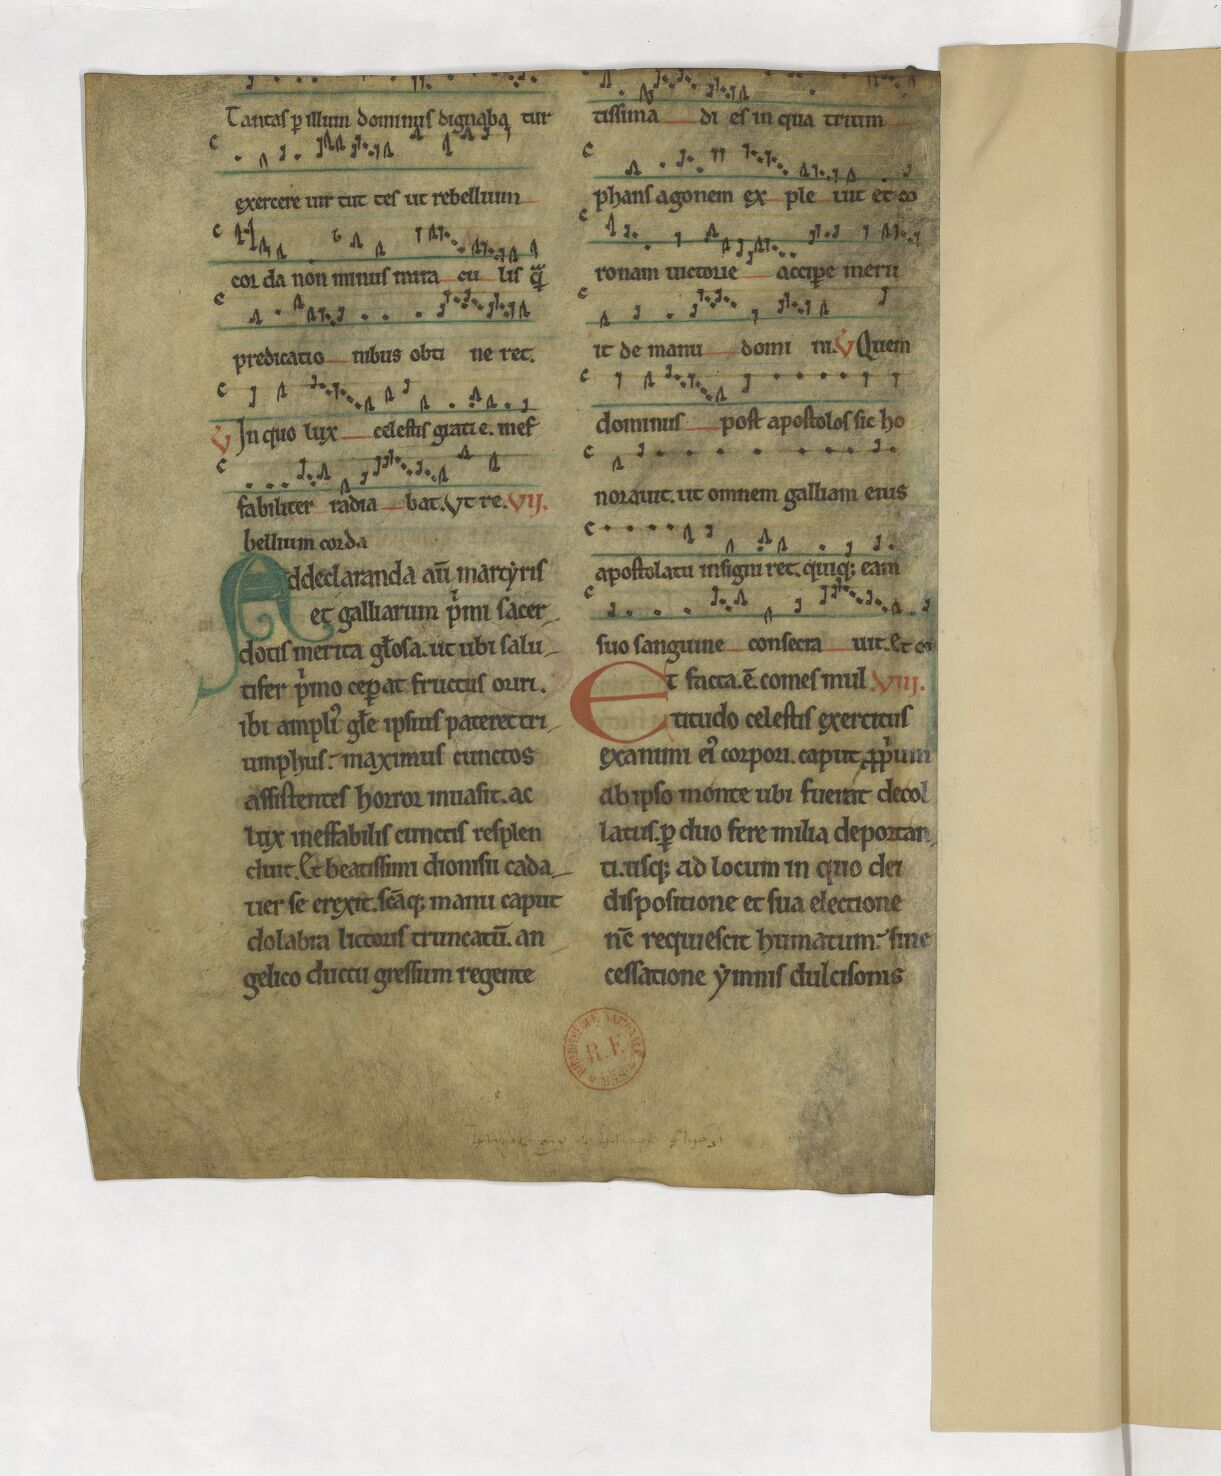 Tantas p illum dominus dignaba tur
exercere uir tut tes ut rebellium
cor da non minus mira cu lis q̃
predicatio nibus obti ne ret.
V In quo lux celestis gratie. inef
fabiliter radia bat. Vt re. VII.
bellium corda
Addeclaranda aũ martyris
et galliarum p̾mi sacer
dotis merita gl̃osa. ut ubi salu
tifer p̾mo ceperat fructus oriri.
ibi ampli gl̃e ipsius pateret tri
umphus. maximus cunctos
assistentes horror inuasit. ac
lux ineffabilis cunctis resplen
duit. Et beatissimi dionisii cada
uer se erexit. scãq; manu caput
dolabra lictoris truncatũ. an
gelico ductu gressum regente
tissima di es in qua trium
phans agonem ex ple uit et co
ronam uictorie accipe meru
it de manu domi ni. V Quem
dominus post apostolos sic ho
norauit. ut omnem galliam eius
apostolatu insigni ret. quiq; eam
suo sanguine consecra uit. Et co
Et facta. ẽ. comes mul VIII.
titudo celestis exercitus
exanimi ei corpori. caput ꝓprium
ab ipso monte ubi fuerat decol
latus. p duo fere milia deportan
ti. usq; ad locum in quo dei
dispositione et sua electione
nc̃ requiescit humatum. sine
cessatione ymnis dulcisonis
R.F.